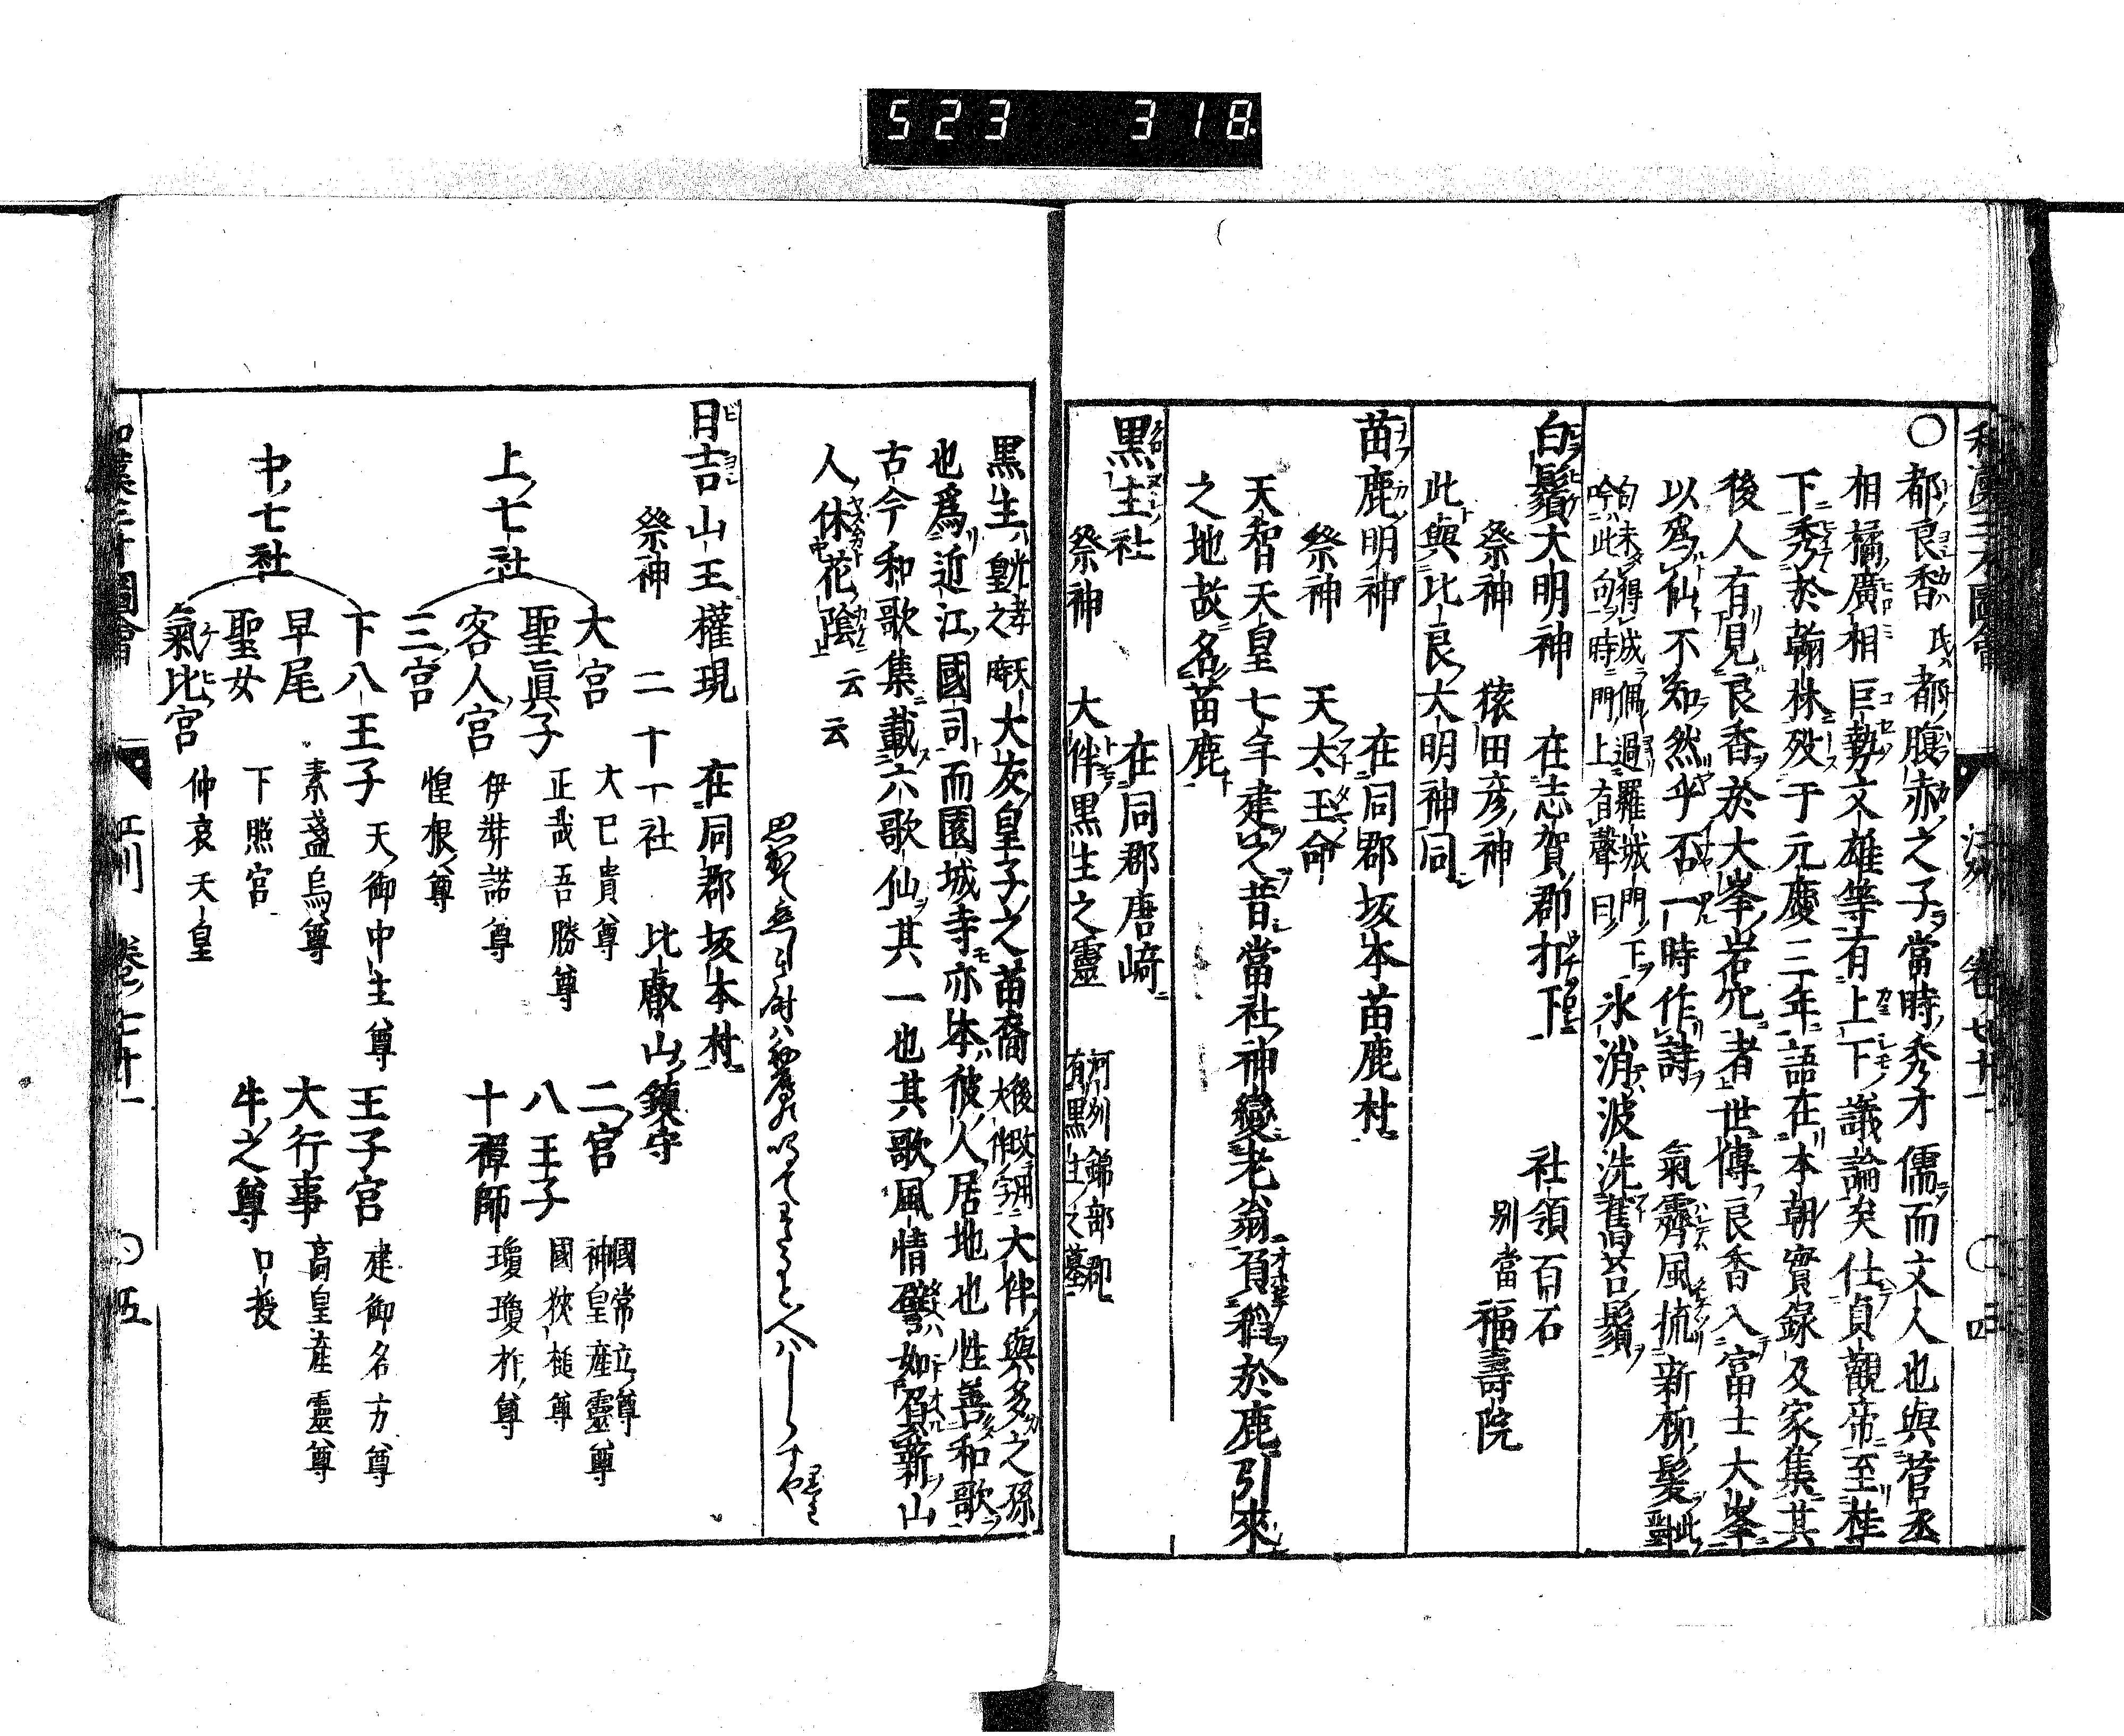 523 318
和漢三才圖會 江州 卷七十一 ○四
○都良香 氏ハ都腹赤之子當時秀才儒而文人也與菅丞
相橘廣相巨勢文雄等有上下議論矣仕貞觀帝至桂
下秀於翰林歿于元慶三年語在本朝實録及家集其
後人有見良香於大峯岩穴者世傳良香入富士大峯
以爲仙不知然乎否一時作詩 氣霽風梳新柳髮 此
句未得成偶過羅城門下
吟此句時門上有聲曰 氷消波洗舊苔鬚
白鬚大明神 在志賀郡打下 社領百石
祭神 猿田彦神 別當 福壽院
此與比良大明神同
苗鹿明神 在同郡坂本苗鹿村
祭神 天太玉命
天智天皇七年建 昔當社神變老翁負稻於鹿引來
之地故名苗鹿
黒主社 在同郡唐崎
祭神 大伴黒主之靈 河州錦部郡
有黒主之墓
黒主ハ 大友皇子之苗裔 大伴與多之孫
也爲近江國司而園城寺亦本彼人居地也性善和歌
古今和歌集載六歌仙其一也其歌風情譬如負薪山
人休花陰云云
日吉山王權現 在同郡坂本村
祭神 二十一社 比叡山鎮守
上七社
大宮 大己貴尊
聖眞子 正哉吾勝尊
客人宮 伊弉諾尊
三宮 惶根尊
二宮 國常立尊
神皇産靈尊
八王子 國狹槌尊
十禪師 瓊瓊杵尊
中七社
下八王子 天御中主尊
早尾 素盞烏尊
聖女 下照宮
氣比宮 仲哀天皇
王子宮 建御名方尊
大行事 高皇産靈尊
牛之尊 口授
和漢三才圖會 江州 卷七十一 ○五